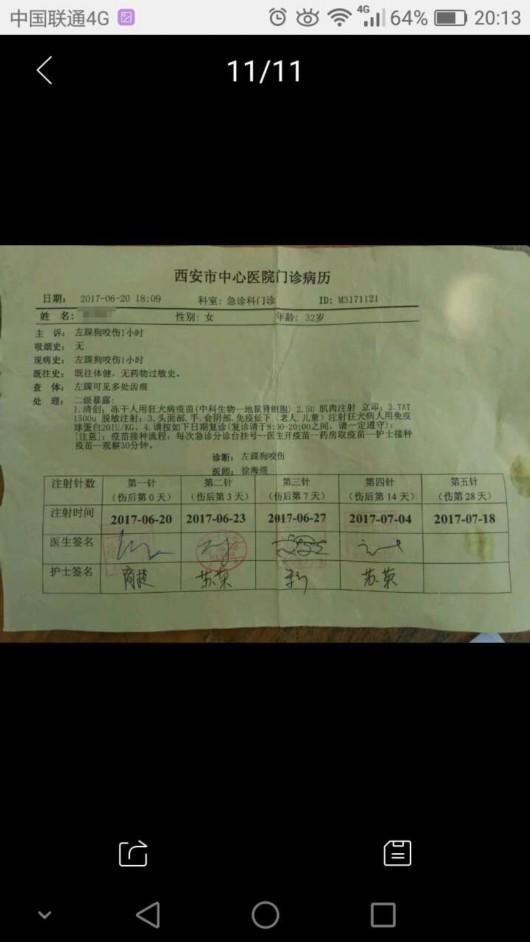 中国联通4G
4G 64% 20:13
11/11
西安市中心医院门诊病历
日期: 2017-06-20 18:09 科室: 急诊科门诊 ID: M3171121
姓 名: 性别: 女 年龄: 32岁
主 诉: 左踝狗咬伤1小时
吸烟史: 无
现病史: 左踝狗咬伤1小时
既往史: 既往体健, 无药物过敏史。
查 体: 左踝可见多处齿痕
处 理: 二级暴露:
1.清创; 冻干人用狂犬病疫苗(中科生物一地鼠肾细胞) 2.5U 肌肉注射 立即; 2.TAT
1500u 脱敏注射; 3.头面部.手.会阴部.免疫低下(老人.儿童)注射狂犬病人用免疫
球蛋白20IU/KG。4.请按如下日期复诊(复诊请于8:30-20:00之间, 请一定遵守);
[注意]: 疫苗接种流程: 每次急诊分诊台挂号—医生开疫苗—药房取疫苗—护士接种
疫苗—观察30分钟。
诊断: 左踝狗咬伤
医师: 徐海
注射针数 第一针 第二针 第三针 第四针 第五针
(伤后第 0天) (伤后第 3天) (伤后第 7天) (伤后第 14天) (伤第 28天)
注射时间 2017-06-20 2017-06-23 2017-06-27 2017-07-04 2017-07-18
医生签名
护士签名 苏荣 苏荣